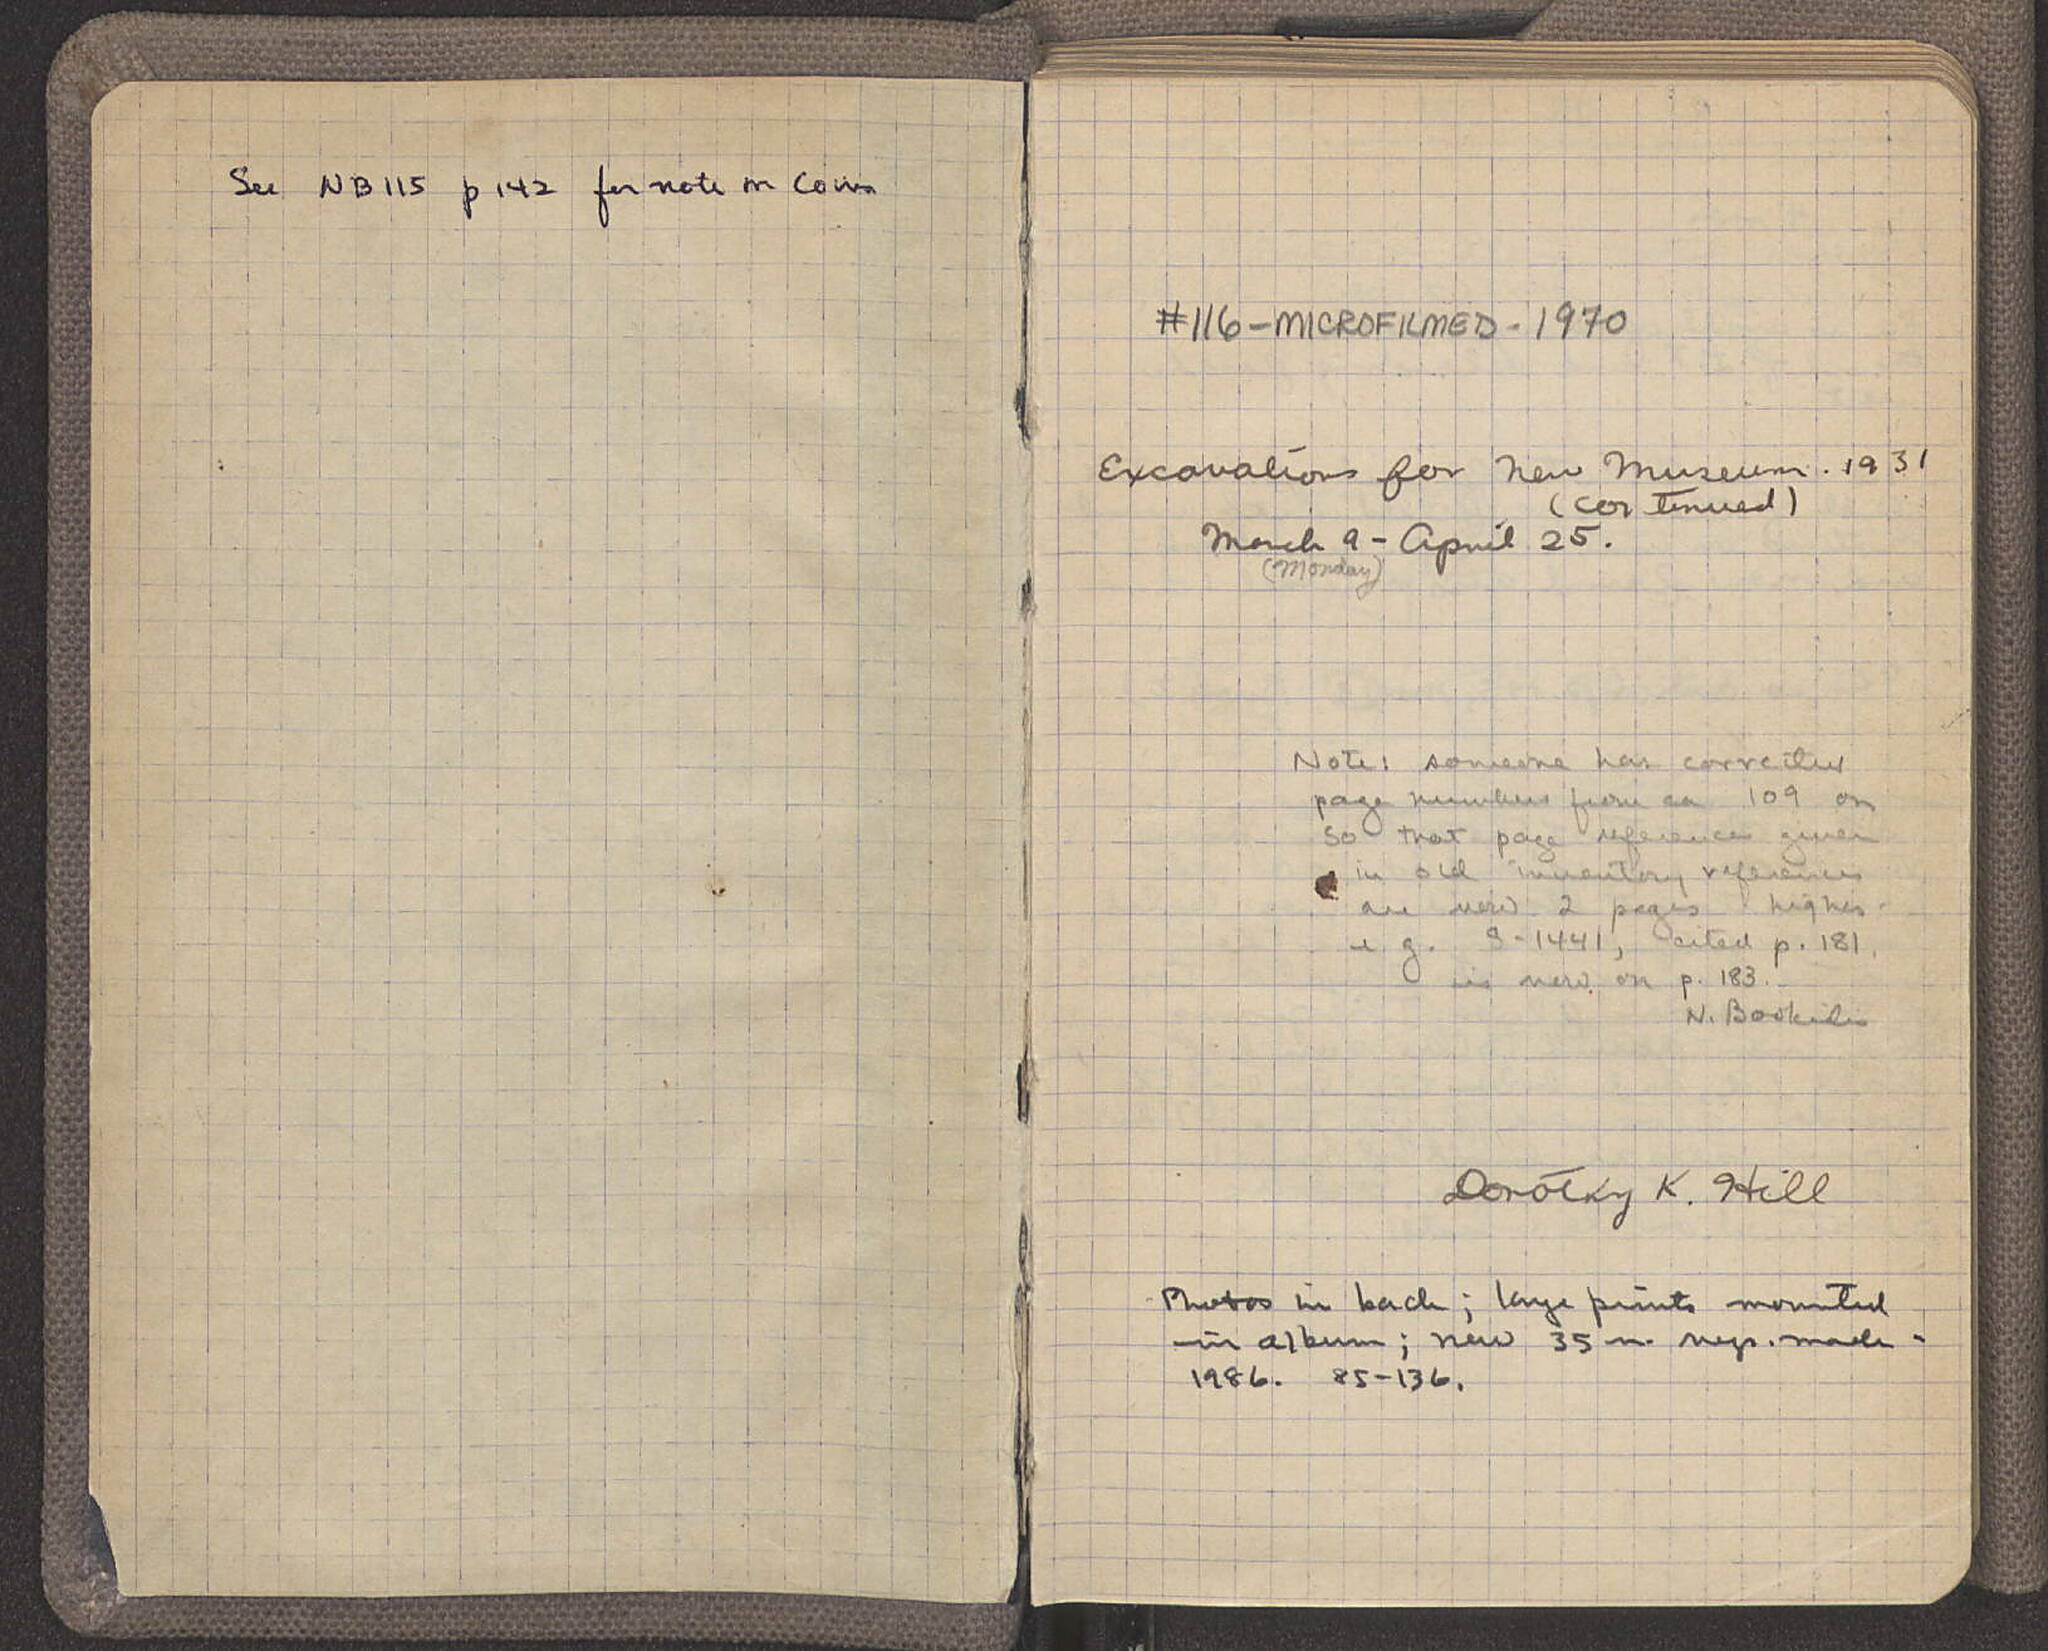 See NB 115 p 142 for note on Coins
#116-MICROFILMED-1970
Excavations for New Museum. 1931
(continued)
March 9 - April 25.
(Monday)
Note: someone has corrected
page numbers from ca 109 on
so that page references given
in old inventory references
are now 2 pages higher.
e g. S-1441, cited p. 181,
is now on p. 183.
N. Bookidis
Dorothy K. Hill
Photos in back; large prints mounted
in album; new 35 m. negs. made -
1986. 85-136.